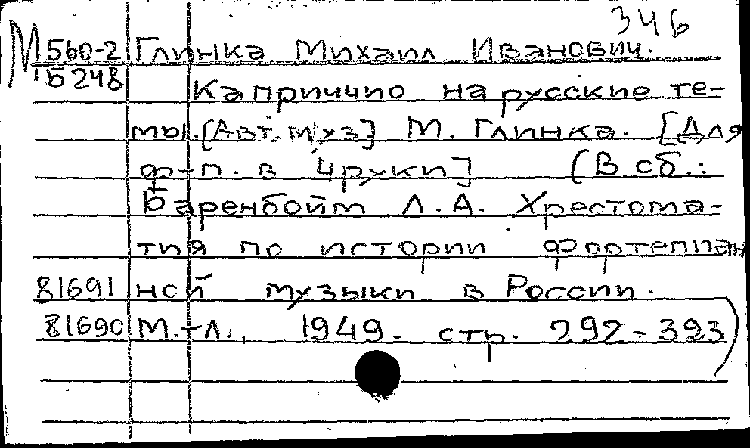 346
М 560-2 Глинка Михаил Иванович.
Б 248
Каприччио на русские те-
мы. [Авт. муз] М. Глинка. [Для
ф-п. в 4 руки] (В сб.:
Баренбойм Л.А. Хрестома-
тия по истории фортепиан
81691 ной музыки в России.
81690 М.-Л., 1949. стр. 292-393)